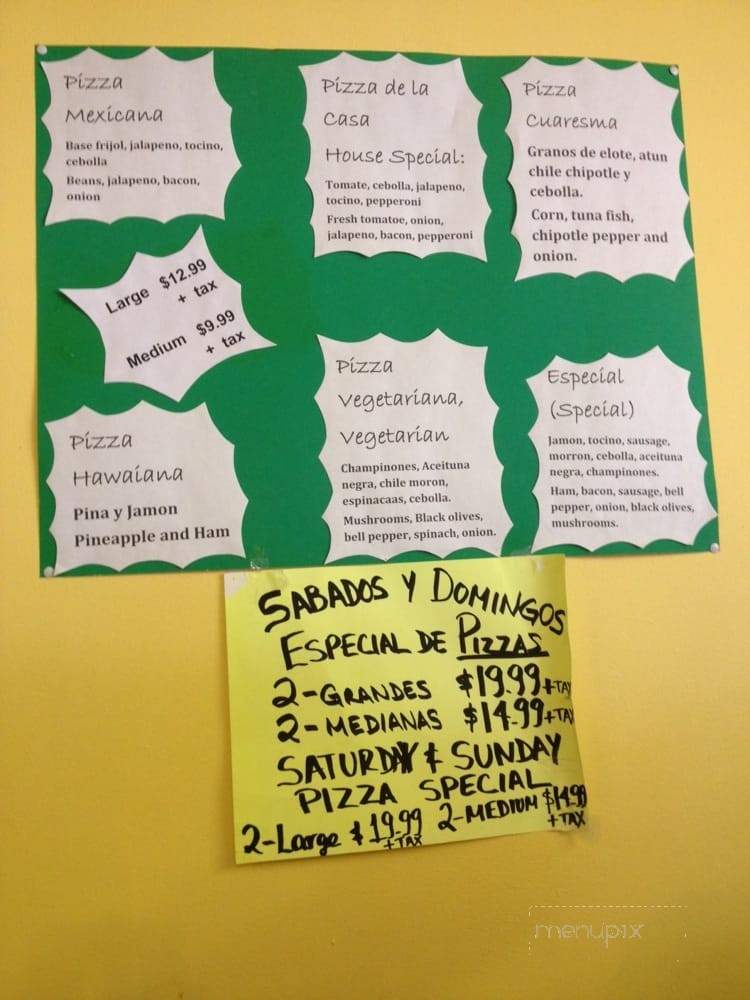 Pizza
Mexicana
Base frijol, jalapeno, tocino,
cebolla
Beans, jalapeno, bacon,
onion
Pizza de la
Casa
House Special:
Tomate, cebolla, jalapeno,
tocino, pepperoni
Fresh tomatoe, onion,
jalapeno, bacon, pepperoni
Pizza
Cuaresma
Granos de elote, atun
chile chipotle y
cebolla.
Corn, tuna fish,
chipotle pepper and
onion.
Large $12.99
+ tax
Medium $9.99
+ tax
Pizza
Hawaiana
Pina y Jamon
Pineapple and Ham
Pizza
Vegetariana,
Vegetarian
Champinones, Aceituna
negra, chile moron,
espinacaas, cebolla.
Mushrooms, Black olives,
bell pepper, spinach, onion.
Especial
(Special)
Jamon, tocino, sausage,
morron, cebolla, aceituna
negra, champinones.
Ham, bacon, sausage, bell
pepper, onion, black olives,
mushrooms.
SABADOS Y DOMINGOS
ESPECIAL DE PIZZAS
2-GRANDES $19.99 + TAX
2-MEDIANAS $14.99 + TAX
SATURDAY & SUNDAY
PIZZA SPECIAL
2-Large $19.99 + TAX 2-MEDIUM $14.99 + TAX
menupix